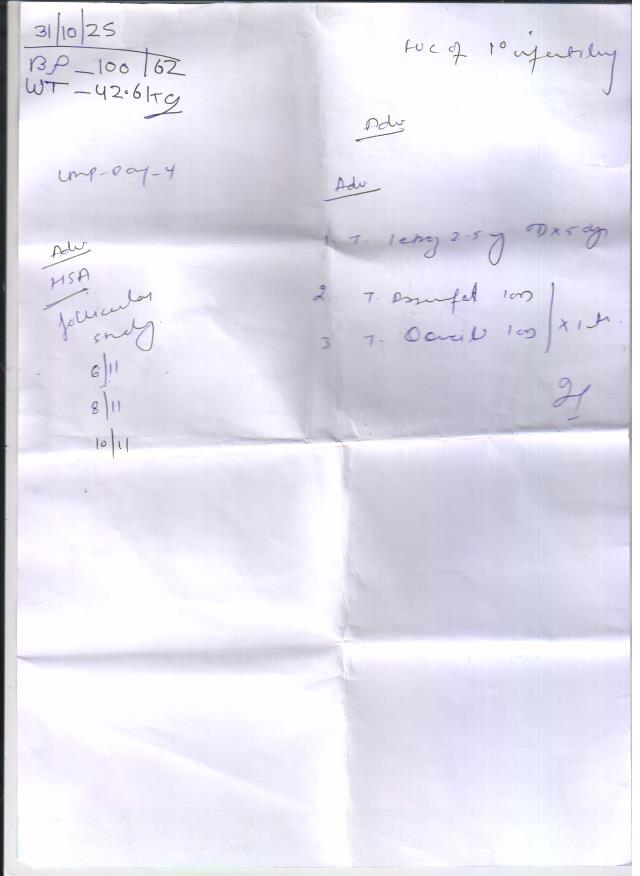 31/10/25
BP - 100/62
WT - 42.6 KG
FUC of 1° infertility
Adv
LMP - Day - 4
Adv
HSA
follicular
study
6/11
8/11
10/11
Adv
1. T. letroz 2.5 mg
2. T. 1 OD
3 T. 1 OD
x 1